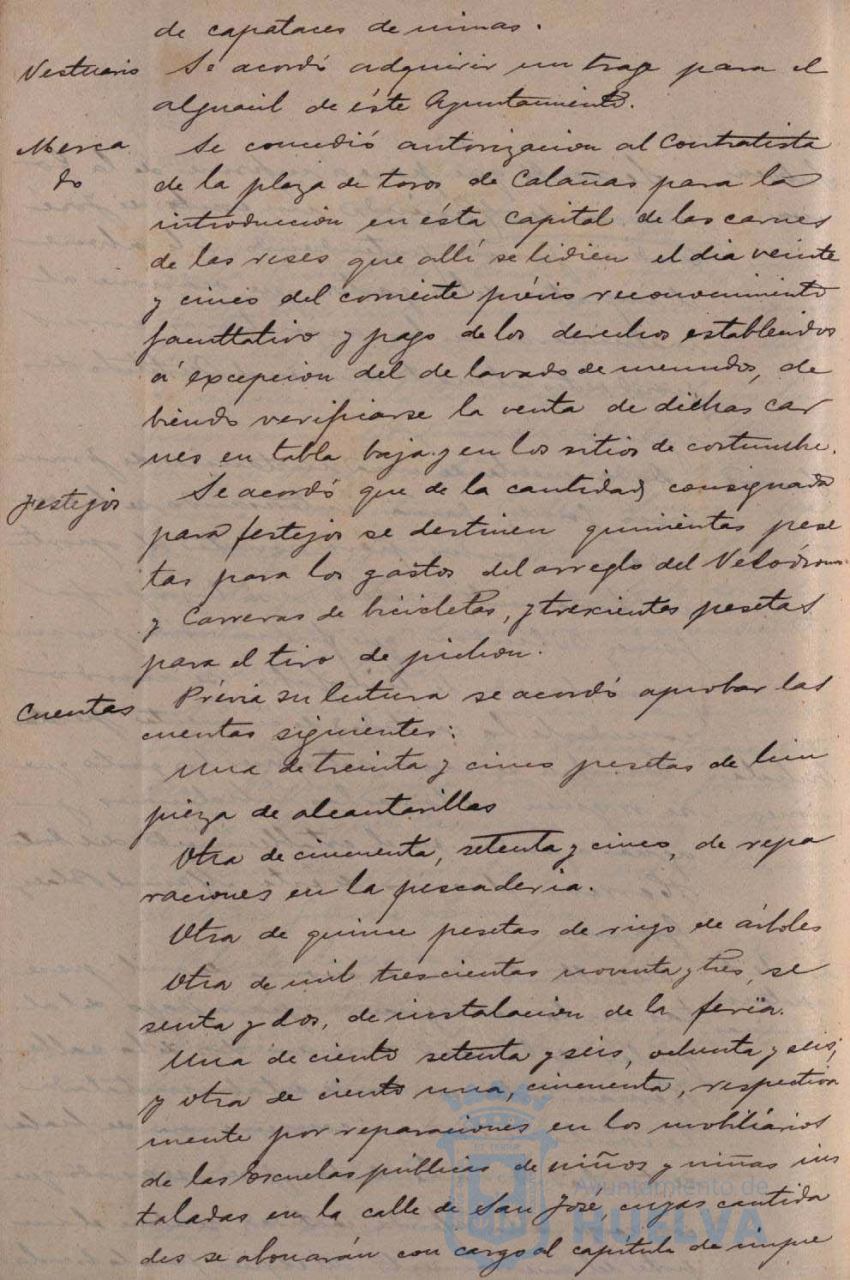 de capataces de minas.
Vestuario Se acordó adquirir un trage para el
alguacil de éste Ayuntamiento.
Merca Se concedió autorizacion al Contratista
do de la plaza de toros de Calañas para la
introduccion en ésta Capital de las carnes
de las reses que allí se lidien el dia veinte
y cinco del corriente prévio reconocimiento
facultativo y pago de los derechos establecidos
á excepcion del de lavado de menudos, de
biendo verificarse la venta de dichas car
nes en tabla baja y en los sitios de costumbre.
Festejos Se acordó que de la cantidad consignada
para festejos se destinen quinientas pese
tas para los gastos del arreglo del Velódromo
y Carreras de bicicletas, y trescientas pesetas
para el tiro de pichon.
Cuentas Prévia su lectura se acordó aprobar las
cuentas siguientes:
Una de treinta y cinco pesetas de lim
pieza de alcantarillas
Otra de cincuenta, setenta y cinco, de repa
raciones en la pescaderia.
Otra de quince pesetas de riego de árboles
Otra de mil trescientas noventa y tres, se
senta y dos, de instalacion de la feria.
Una de ciento setenta y seis, ochenta y seis,
y otra de ciento una, cincuenta, respectiva
mente por reparaciones en los mobiliários
de las Escuelas públicas de niños y niñas ins
taladas en la calle de San José cuyas cantida
des se abonarán con cargo al capítulo de impre
Ayuntamiento de
HUELVA